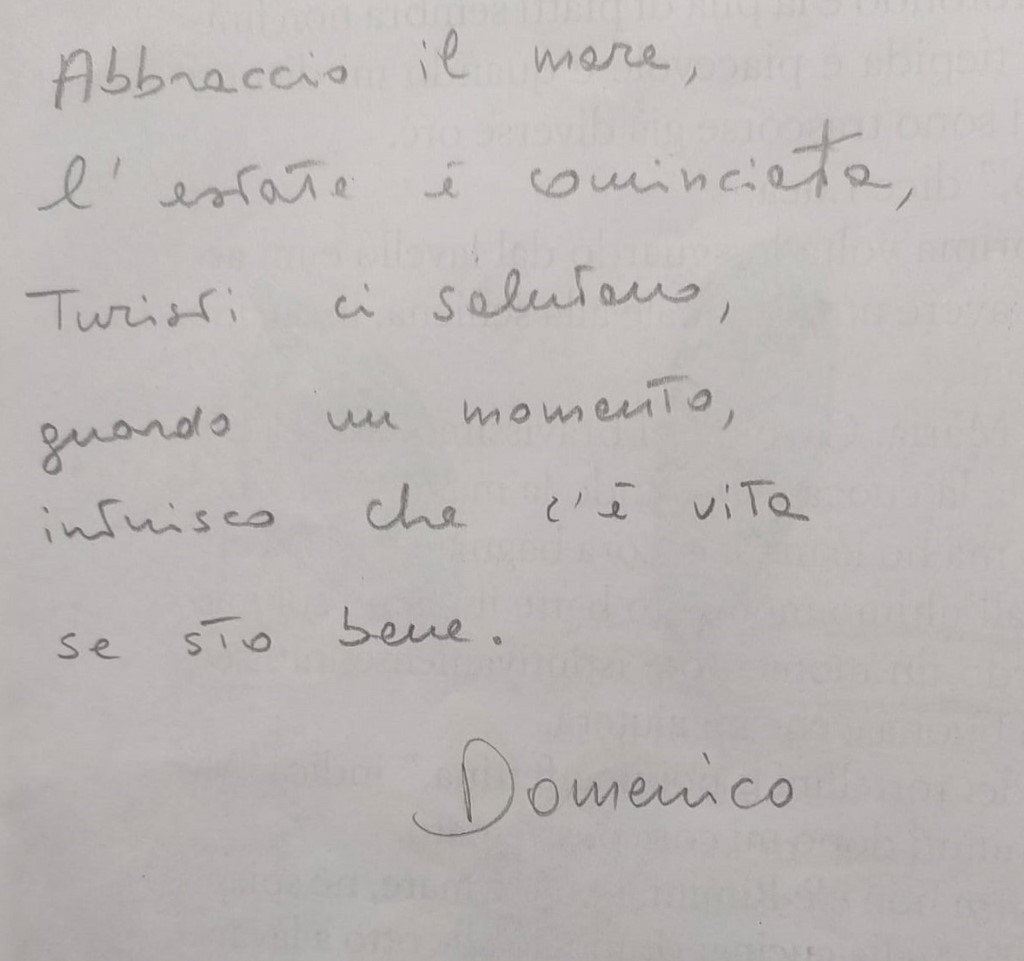 Abbraccio il mare,
l'estate è cominciata,
Turisti ci salutano,
guardo un momento,
intuisco che c'è vita
se sto bene.
Domenico